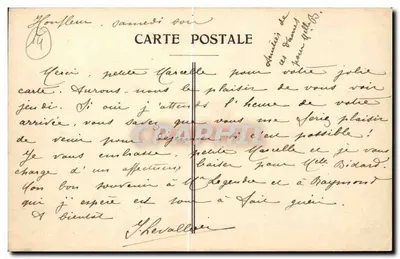 Honfleur, samedi soir
Amitiés de
pour Melle B.
19
CARTE POSTALE
Merci, petite Marcelle pour votre jolie
carte. Aurons-nous le plaisir de vous voir
jeudi. Si oui j'attends l'heure de votre
arrivée, vous savez que vous me ferez plaisir
de venir pour si c'est possible!
Je vous embrasse, petite Marcelle et je vous
charge d'un affectueux baiser pour Melle Bidard.
Mon bon souvenir à Me Legendre et à Raymond
qui j'espère est tout à fait guéri.
A bientôt
J Levallois